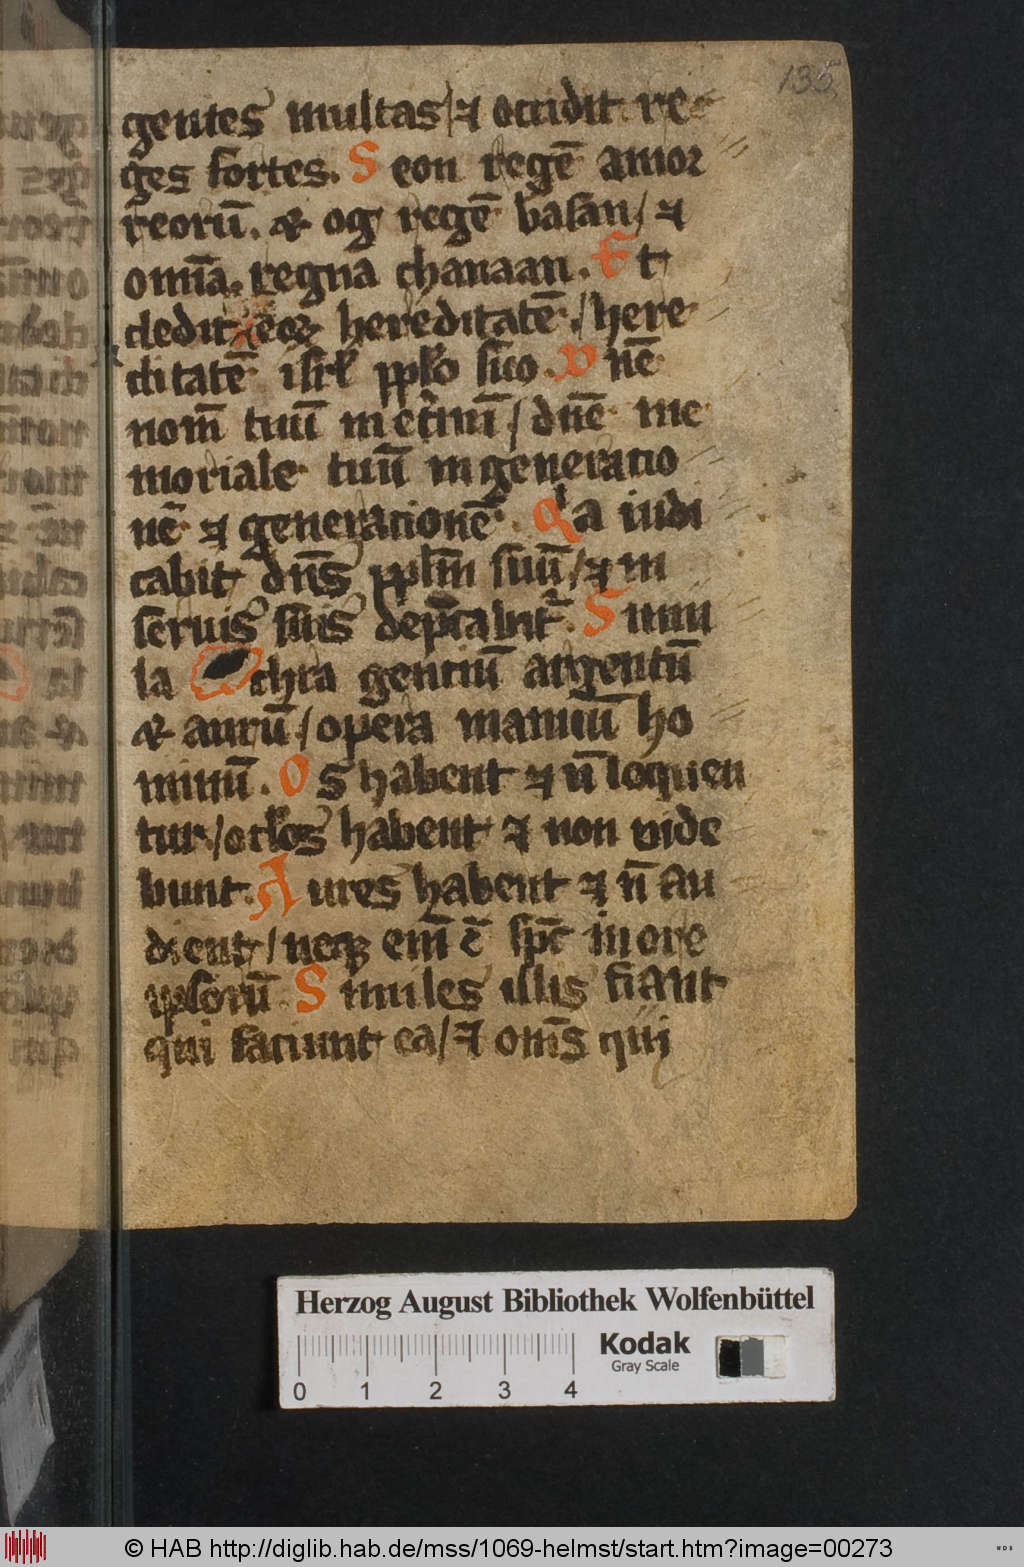 135
gentes multas / ⁊ occidit re
ges fortes. Seon regē amor
reorū. & og regē basan / ⁊
om̄ia regna chanaan. Et
dedit t̄eoꝝ hereditatē / here
ditatē isrl̄ ppl̄o suo. D nē
nom̄ tuū in et̄nū / dn̄e me
moriale tuū in generatio
nē ⁊ generationē. Qⁱa iudi
cabit dn̄s ppl̄m suū / ⁊ in
seruis suis dep̄cabit᷑. Simu
la chra gentiū argentū
& aurū / opera manuū ho
minū. Os habent ⁊ n̄ loquen
tur / ocl̄os habent ⁊ non vide
bunt. Aures habent ⁊ n̄ au
dient / neqꝫ em̄ ē sp̄c in ore
ipsorū. Similes illis fiant
qui faciunt ea / ⁊ om̄s qui
Herzog August Bibliothek Wolfenbüttel
Kodak
Gray Scale
0 1 2 3 4
© HAB http://diglib.hab.de/mss/1069-helmst/start.htm?image=00273